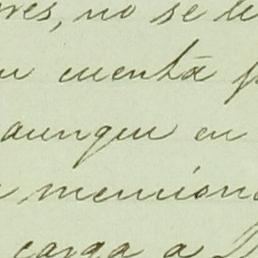 res, no se le
u cuenta
aunque en
menciona
carga a